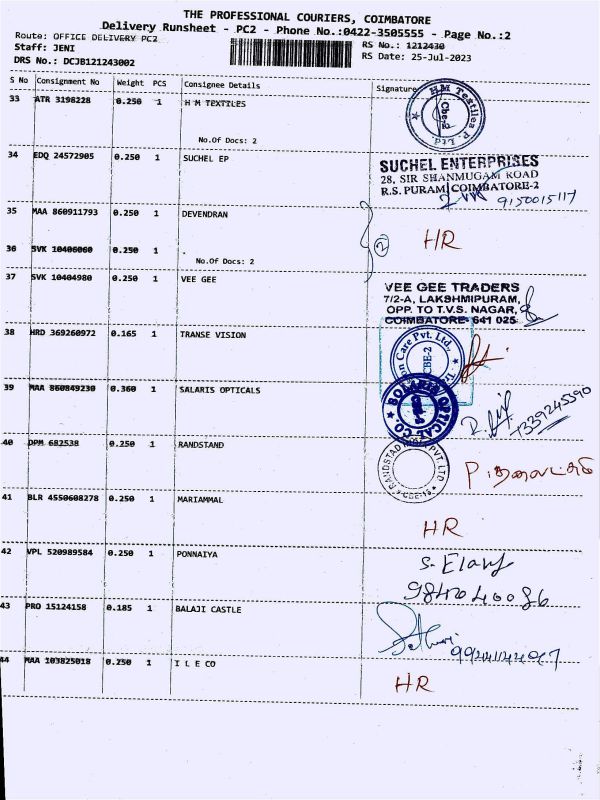 THE PROFESSIONAL COURIERS, COIMBATORE
Delivery Runsheet - PC2 - Phone No.:0422-3505555 - Page No.:2
Route: OFFICE DELIVERY PC2
RS No.: 1212430
Staff: JENI
RS Date: 25-Jul-2023
DRS No.: DCJB121243002
S No Consignment No Weight PCS Consignee Details Signature
33 ATR 3198228 0.250 1 H M TEXTILES
HM Textiles P Ltd
Cbe-2
No.Of Docs: 2
34 EDQ 24572905 0.250 1 SUCHEL EP
SUCHEL ENTERPRISES
28, SIR SHANMUGAM ROAD
R.S. PURAM, COIMBATORE-2
9150015117
35 MAA 860911793 0.250 1 DEVENDRAN
2 HR
36 SVK 10406060 0.250 1 .
No.Of Docs: 2
37 SVK 10404980 0.250 1 VEE GEE
VEE GEE TRADERS
7/2-A, LAKSHMIPURAM,
OPP. TO T.V.S. NAGAR,
COIMBATORE- 641 025
38 HRD 369260972 0.165 1 TRANSE VISION
Care Pvt. Ltd.
CBE-2
39 MAA 860849230 0.360 1 SALARIS OPTICALS
OPTICAL CO.
40 DPM 682538 0.250 1 RANDSTAND
RANDSTAD PVT LTD
41 BLR 4550608278 0.250 1 MARIAMMAL
HR
42 VPL 520989584 0.250 1 PONNAIYA
43 PRO 15124158 0.185 1 BALAJI CASTLE
44 MAA 103825018 0.250 1 I L E CO
HR